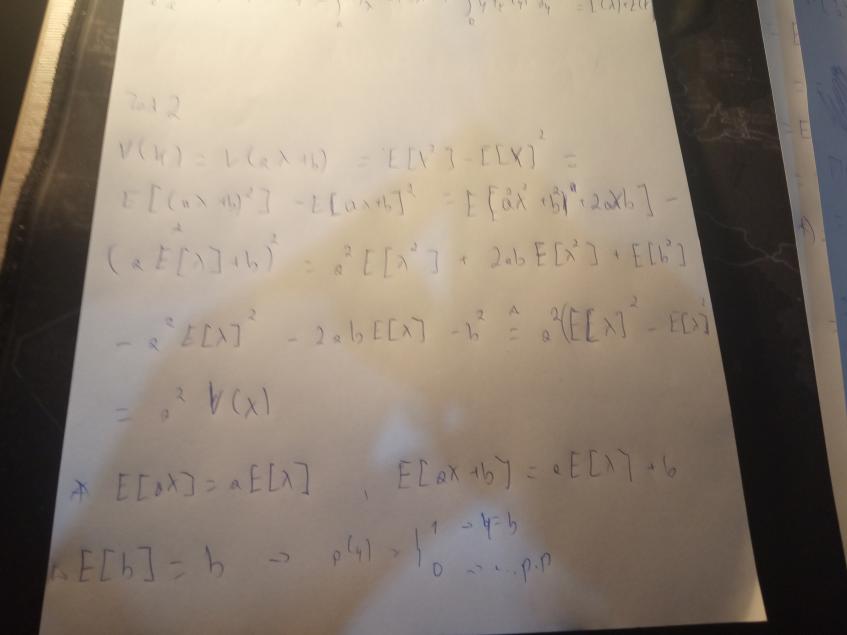 Zad 2
V(Y) = V(aX+b) = E[X²] - E[X]² =
E[(aX+b)²] - E[aX+b]² = E[a²X² + b² + 2aXb] -
(a E[X] + b)² = a² E[X²] + 2ab E[X²] + E[b²]
- a² E[X]² - 2ab E[X] - b² = a²(E[X]² - E[X]²
= a² V(X)
* E[aX] = a E[X] , E[aX+b] = a E[X] + b
E[b] = b → p(y) = { 1 → y=b
0 → ...p.p